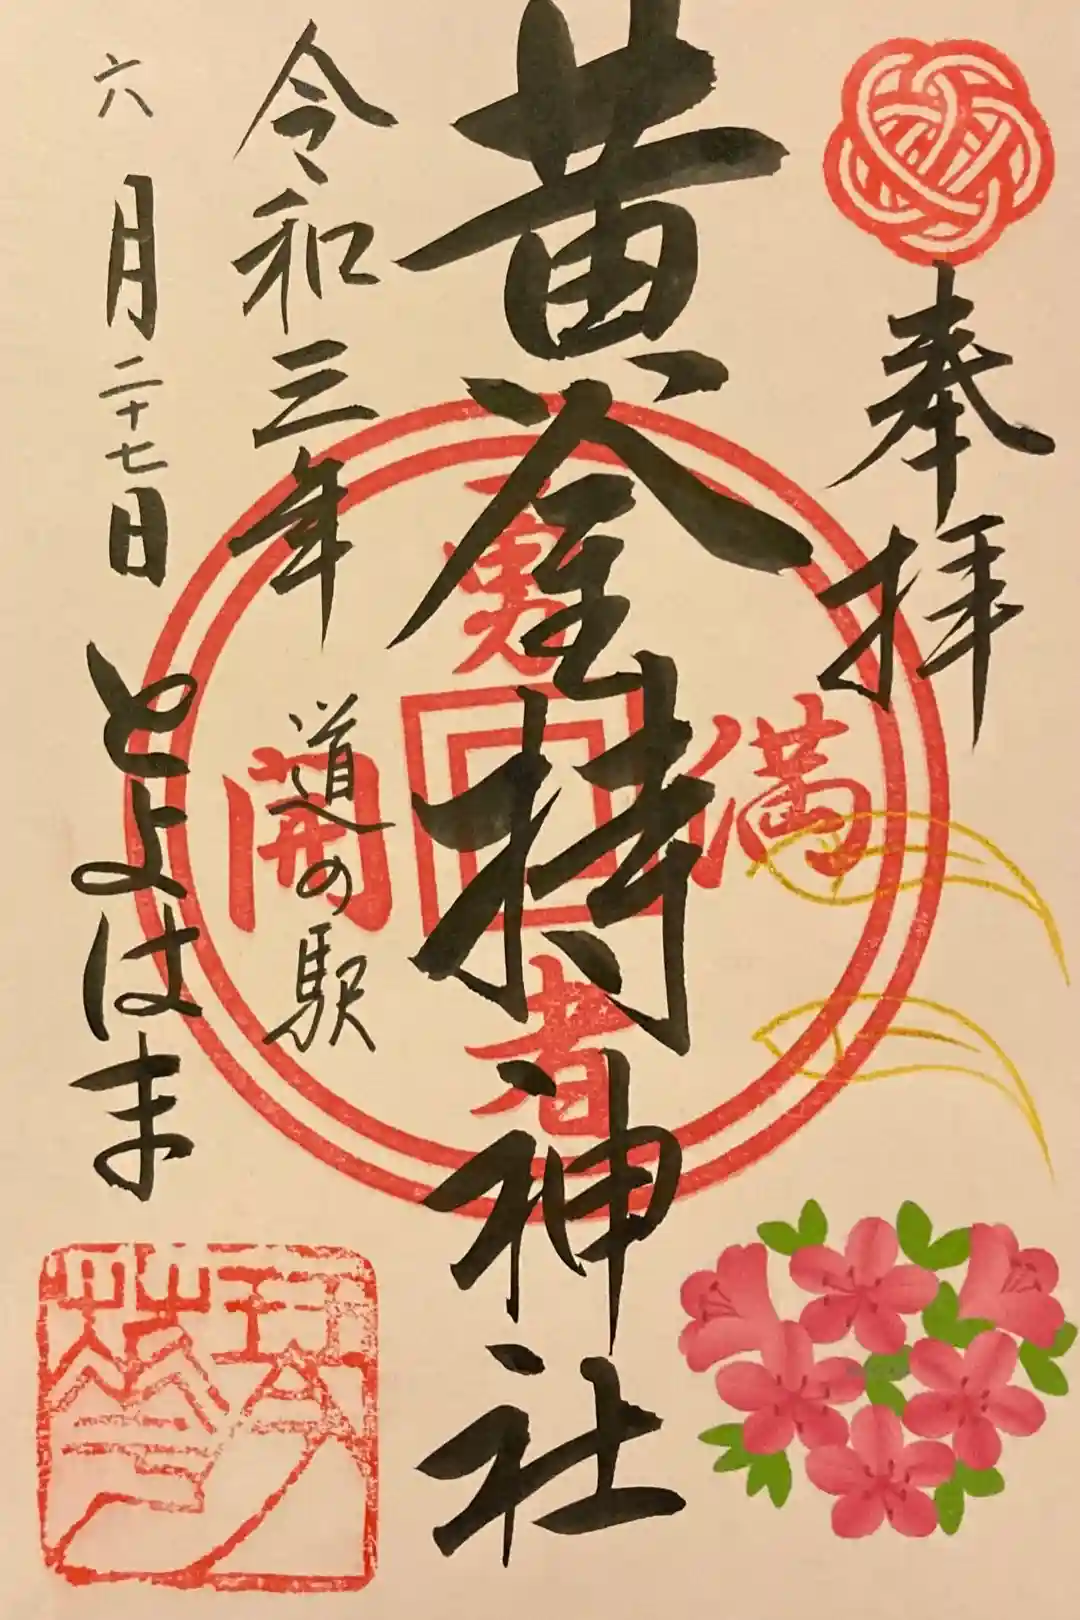 奉拝
黄金持神社
満
勇
開
者
令和三年
道の駅
六月二十七日
とよはま